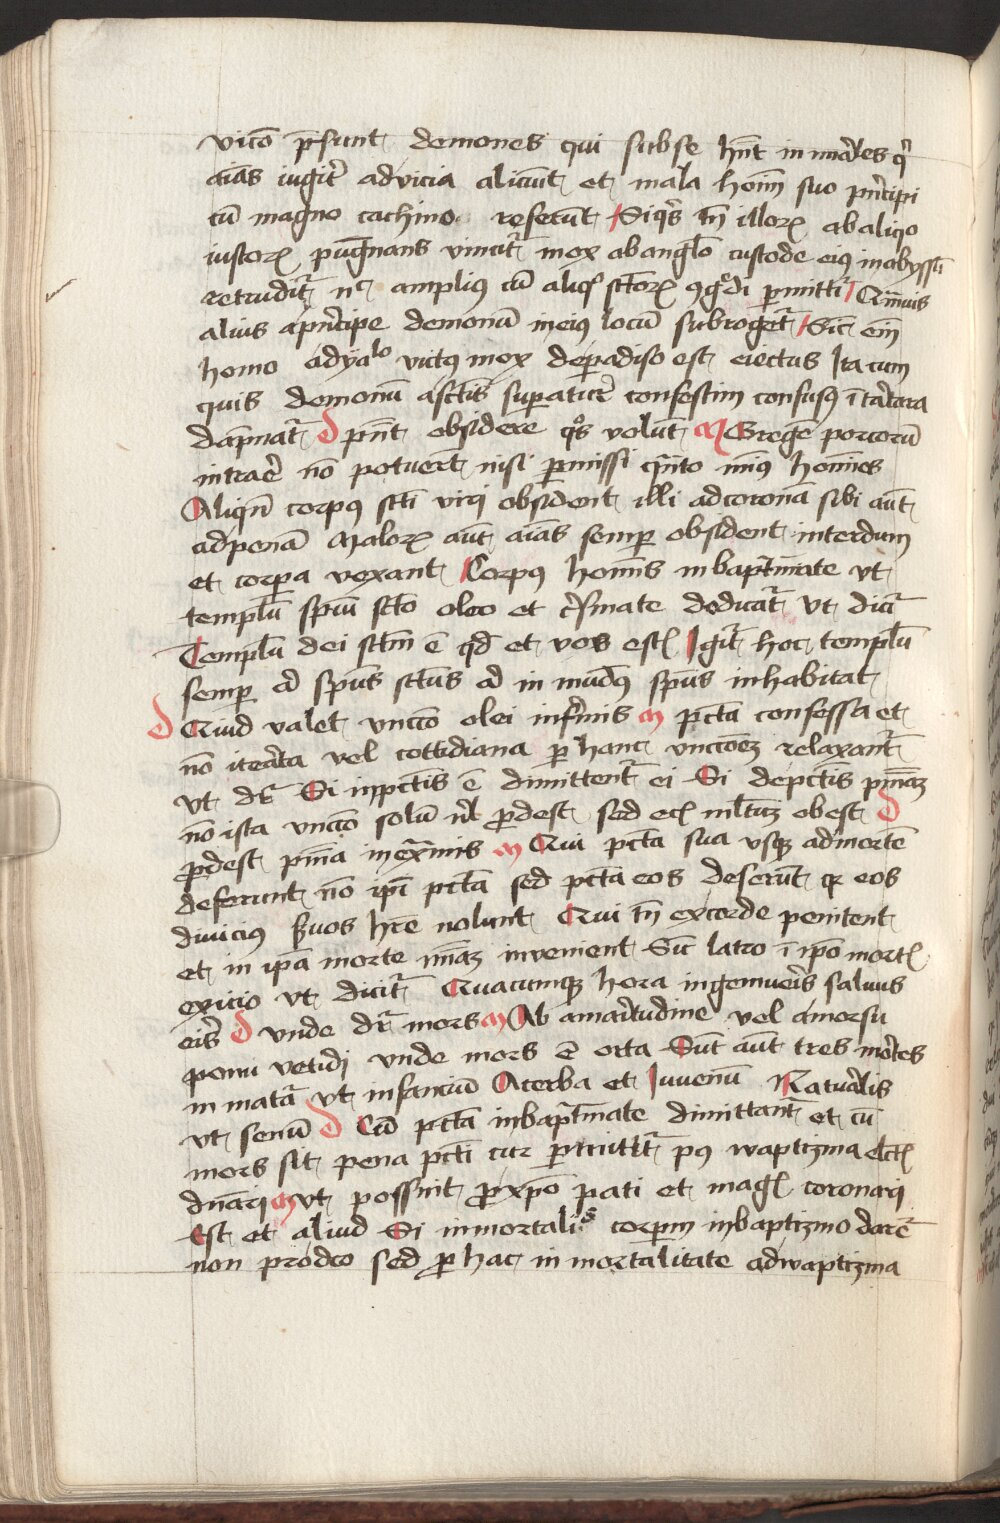 vicio p̄sunt demones qui sub se hn̄t in mūdales q̄
aīas iugit̄ ad vicia aliciūt et mala hoīm suo pn̄cipi
cū magno cachino referūt Si q̄s tn̄ illoꝝ ab aliq̊
iustoꝝ pugnans vincit̄ mox ab angl̄o custode eiꝰ in abyssū
retrudit̄ nc̄ ampliꝰ cū aliq̊ sctōꝝ ꝯgͤdi ꝑmittit̄ Quīmīs
alius a pn̄cipe demonū in eiꝰ locū subroget̄ Sic̄ em̄
homo a dyalo victꝰ mox de padiso est eiectus Ita cum
quis demonū a sctīs suꝑatur confestim confusꝰ ī tartara
dāpnat̄ D pn̄t obsidere q̊s volūt M Gregē porcorū
intrar̄e nō potuert̄ nisi ꝑmissi q̄nto minꝰ hoīes
Aliqn̄ corpꝰ sctī viri obsident illi ad coronā sibi aūt
ad penā Maloꝝ aūt aīas semꝑ obsident interdum
et corpa vexant Corpꝰ hoīnis in baptīmate vt
templū spiū sctō oleo et crīsmate dedicat̄ vt dicit̄
Templū dei sctm̄ ē qd̄ et vos estꝭ Igit̄ hoc templū
semꝑ aͩ spūs sctūs aͩ in mūdꝰ spūs inhabitat
D Quid valet unctō olei infirmis M pctā confessa et
nō iterāta vel cottidiana ꝑ hanc unctōeꝫ relaxant̄
vt dr̄ Si in pctīs ē dimittent̄ ei Si de pctīs pn̄iaꝫ
nō ista unctō solū nl̄ ꝓdest sed et mltūꝫ obest D
ꝓdest pn̄ia in extīmis M Qui pctā sua vsqꝫ ad mortē
deferunt nō ipī pctā sed pctā eos deserūt qꝛ eos
diuicius suos hr̄e nolunt Qui tn̄ ex corde penitent
et in ipā morte vn̄iaꝫ invenient Sic̄ latro ī ipō mortꝭ
exicio vt dicit̄ Quacumqꝫ hora ingemueris saluus
eris D unde dr̄ mors M Ab amaritudine vel a morsu
pomi vetidi unde mors ē orta Sūt aūt tres mortes
inmatā vt infanciū Acerba et Iuvenū Naturalis
vt senū D Cū pctā in baptīmate dimittant̄ et cū
mors sit pena pctī cur ꝑmittit̄ pꝰ waptizma elctꝭ
dn̄ari M vt possint ꝓ xpō pati et magꝭ coronari
Est et aliud Si inmortalis corpm in baptizmo darē
non prodco sed ꝓ hac inmortalitate ad waptizma